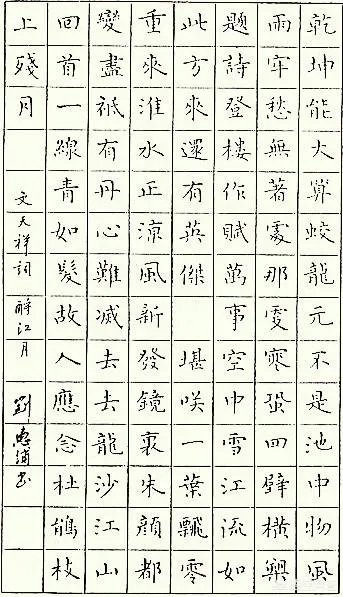 乾坤能大算蛟龍元不是池中物風
雨牢愁無著處那更寒蛩四壁橫槊
題詩登樓作賦萬事空中雪江流如
此方來還有英傑 堪咲一葉飄零
重來淮水正涼風新發鏡裏朱顏都
變盡祇有丹心難滅去去龍沙江山
回首一線青如髮故人應念杜鵑枝
上殘月 文天祥詞 酹江月 劉惠浦書